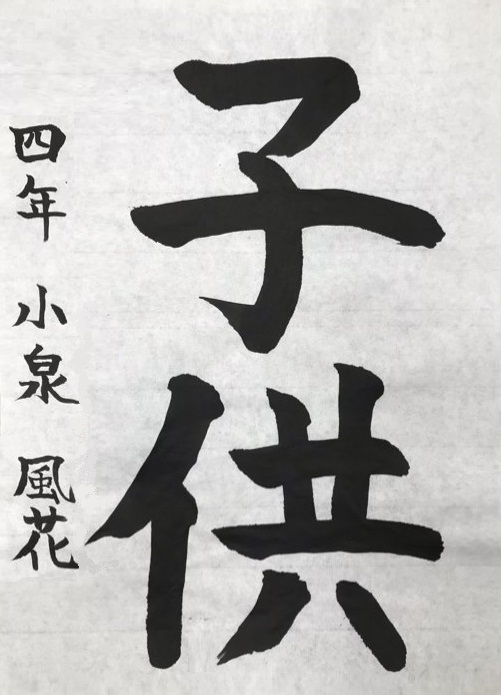 子供
四年 小泉 風花